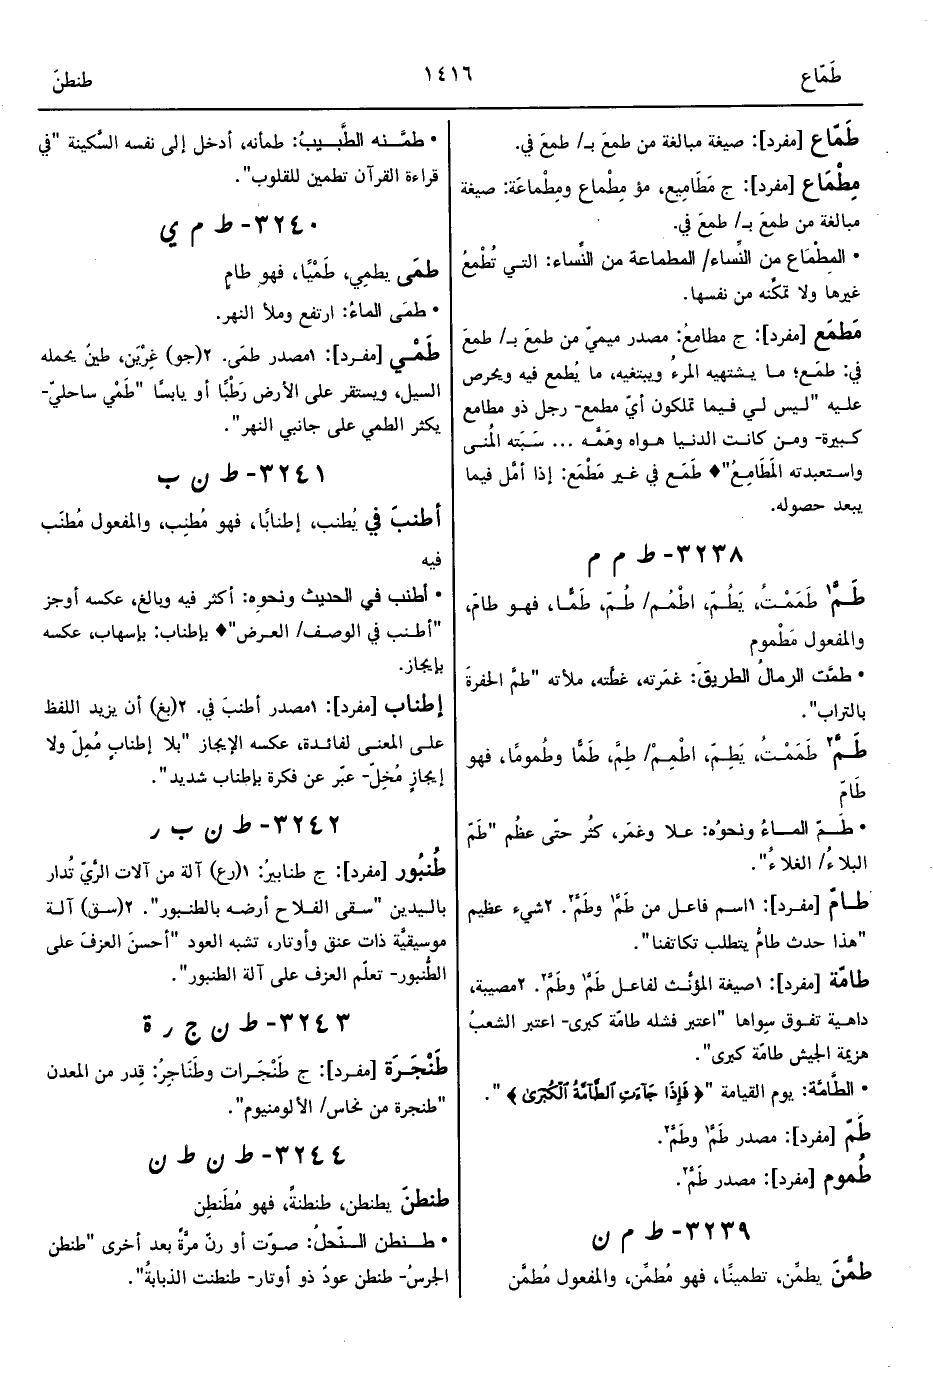 طَمّاع
١٤١٦
طنطنَ
طَمّاع [مفرد]: صيغة مبالغة من طمعَ بـ/ طمعَ في.
مِطْمَاع [مفرد]: ج مَطَامِيع، مؤ مِطْماع ومِطْماعَة: صيغة
مبالغة من طمعَ بـ/ طمعَ في.
• المِطْمَاع من النِّساء/ المطماعة من النِّساء: التي تُطْمِعُ
غيرها ولا تمكِّنه من نفسها.
مَطمَع [مفرد]: ج مطامعُ: مصدر ميميّ من طمعَ بـ/ طمعَ
في: طمَع؛ ما يشتهيه المرءُ ويبتغيه، ما يُطمع فيه ويحرص
عليه "ليس لي فيما تملكون أيّ مطمع- رجل ذو مطامع
كبيرة- ومن كانت الدنيا هواه وهَمَّه ... سَبَته المُنى
واستعبدته المَطَامِعُ"♦ طَمَع في غير مَطْمَع: إذا أمَّل فيما
يبعد حصوله.
٣٢٣٨- ط م م
طَمَّ١ طَمَمْتُ، يَطُمّ، اطْمُم/ طُمّ، طَمًّا، فهو طامّ،
والمفعول مَطْموم
• طمَّت الرمالُ الطريقَ: غمَرته، غطَّته، ملأته "طمَّ الحفرةَ
بالتراب".
طَمَّ٢ طَمَمْتُ، يَطِمّ، اطْمِمْ/ طِمَّ، طَمًّا وطُمومًا، فهو
طَامّ
• طَمّ الماءُ ونحوُه: علا وغمَر، كثُر حتّى عظُم "طَمّ
البلاءُ/ الغلاءُ".
طامّ [مفرد]: ١اسم فاعل من طَمَّ١ وطَمَّ٢. ٢شيء عظيم
"هذا حدث طامٌّ يتطلب تكاتفنا".
طامّة [مفرد]: ١صيغة المؤنَّث لفاعل طَمَّ١ وطَمَّ٢. ٢مصيبة،
داهية تفوق سِواها "اعتبر فشله طامّة كبرى- اعتبر الشعبُ
هزيمة الجيش طامّة كبرى".
• الطَّامَّة: يوم القيامة "﴿ فَإِذَا جَآءَتِ ٱلطَّآمَّةُ ٱلْكُبْرَىٰ ﴾".
طَمّ [مفرد]: مصدر طَمَّ١ وطَمَّ٢.
طُموم [مفرد]: مصدر طَمَّ٢.
٣٢٣٩- ط م ن
طمَّنَ يطمِّن، تطمينًا، فهو مُطمِّن، والمفعول مُطمَّن
• طمَّنه الطَّبيبُ: طمأنه، أدخل إلى نفسه السَّكينة "في
قراءة القرآن تطمين للقلوب".
٣٢٤٠- ط م ي
طمَى يطمِي، طَمْيًا، فهو طامٍ
• طمَى الماءُ: ارتفع وملأ النهر.
طَمْي [مفرد]: ١مصدر طمَى. ٢(جو) غِرْيَن، طينٌ يحمله
السيل، ويستقر على الأرض رَطْبًا أو يابسًا "طَمْي ساحليّ-
يكثر الطمي على جانبي النهر".
٣٢٤١- ط ن ب
أطنبَ في يُطنب، إطنابًا، فهو مُطنِب، والمفعول مُطنَب
فيه
• أطنب في الحديث ونحوه: أكثر فيه وبالغ، عكسه أوجز
"أطنب في الوصف/ العرض"♦ بإطناب: بإسهاب، عكسه
بإيجاز.
إطناب [مفرد]: ١مصدر أطنبَ في. ٢(بغ) أن يزيد اللفظ
على المعنى لفائدة، عكسه الإيجاز "بلا إطنابٍ مُمِلّ ولا
إيجازٍ مُخِلّ- عبّر عن فكرة بإطناب شديد".
٣٢٤٢- ط ن ب ر
طُنبُور [مفرد]: ج طنابيرُ: ١(رع) آلة من آلات الرّيّ تُدار
باليدين "سقى الفلاح أرضه بالطنبور". ٢(سق) آلة
موسيقيَّة ذات عنق وأوتار، تشبه العود "أحسنَ العزفَ على
الطُّنبور- تعلّم العزف على آلة الطنبور".
٣٢٤٣- ط ن ج ر ة
طَنْجَرَة [مفرد]: ج طَنْجَرات وطَنَاجِرُ: قِدر من المعدن
"طنجرة من نحاس/ الألومنيوم".
٣٢٤٤- ط ن ط ن
طنطنَ يطنطن، طنطنةً، فهو مُطَنطِن
• طـنطن الـنّحلُ: صوّت أو رنّ مرَّةً بعد أخرى "طنطن
الجرسُ- طنطن عودٌ ذو أوتار- طنطنت الذبابةُ".